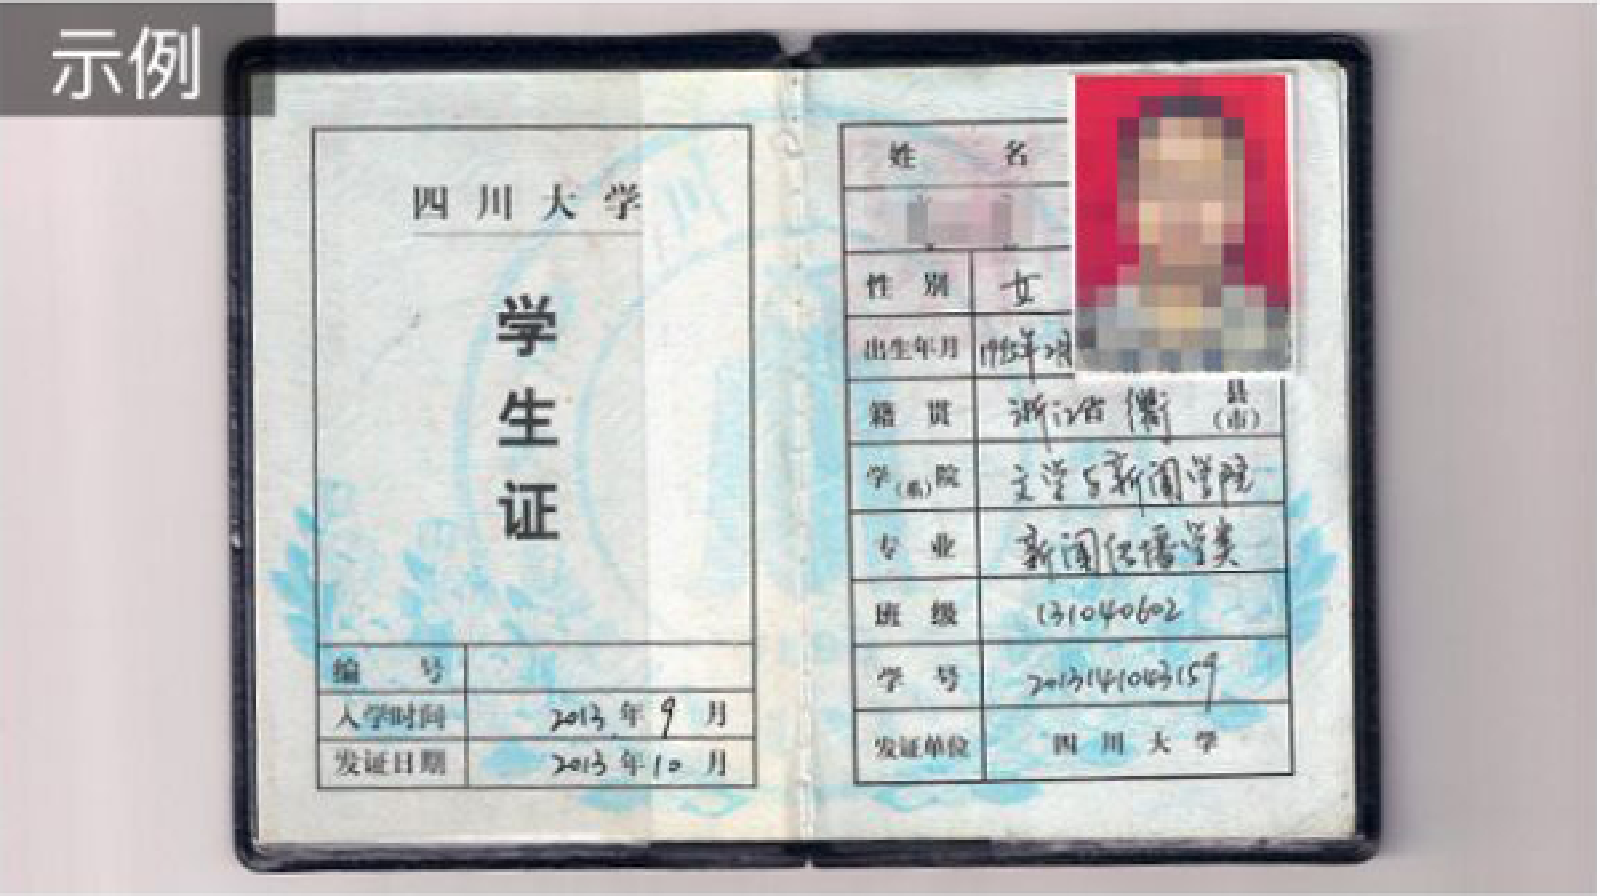 示例
四川大学
学生证
编号
入学时间 2013年9月
发证日期 2013年10月
姓名
性别 女
出生年月 1995年2月
籍贯 浙江省 衢 县(市)
学(系)院 文学与新闻学院
专业 新闻传播学类
班级 131040602
学号 2013141043159
发证单位 四川大学